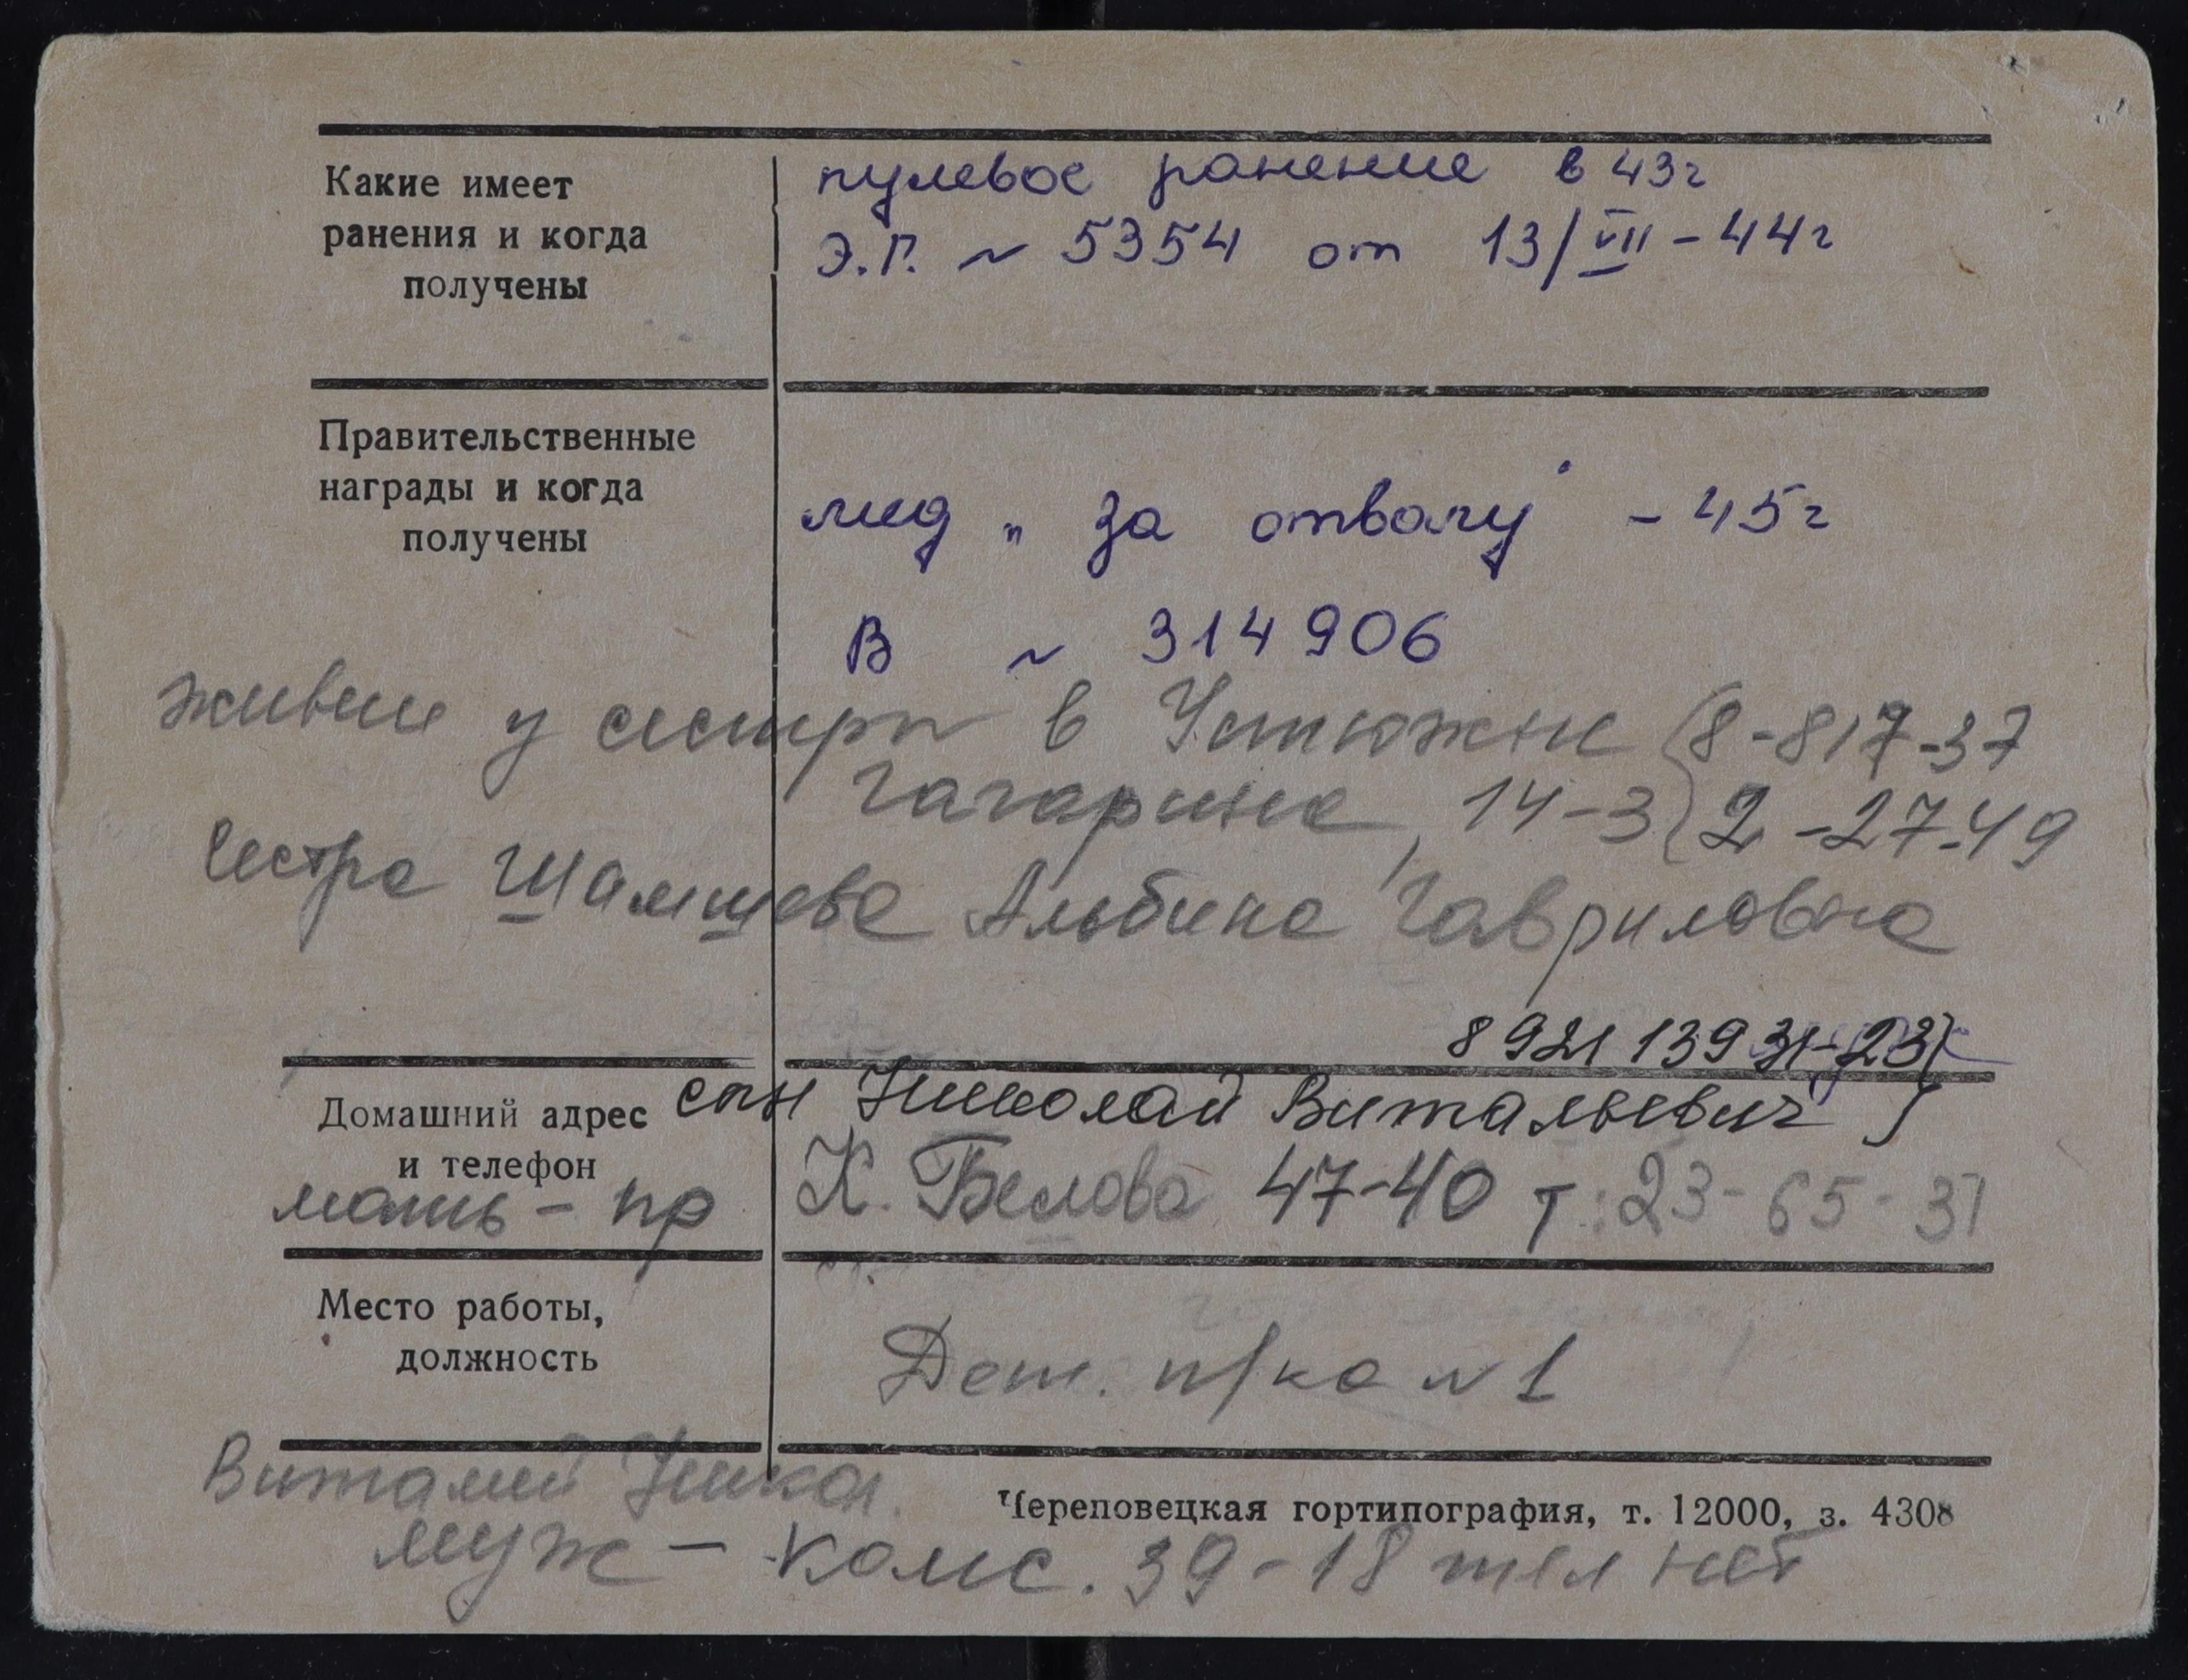 Какие имеет
ранения и когда
получены
пулевое ранение в 43г
Э.Г. ~ 5354 от 13/VII - 44г
Правительственные
награды и когда
получены
мед „за отвагу" - 45г
В ~ 314906
живет у сестры в Устюжне (8-817-37
Гагарина, 14-3 2-27-49
Сестра Шамшева Альбина Гавриловна
8 921 139 31-23
сын Николай Витальевич
Домашний адрес
и телефон
мать - пр К. Белова 47-40 т: 23-65-31
Место работы,
должность
Дет. п/ка N 1
Виталий Никол.
Череповецкая гортипография, т. 12000, з. 4308
муж - комс. 39-18 тел нет